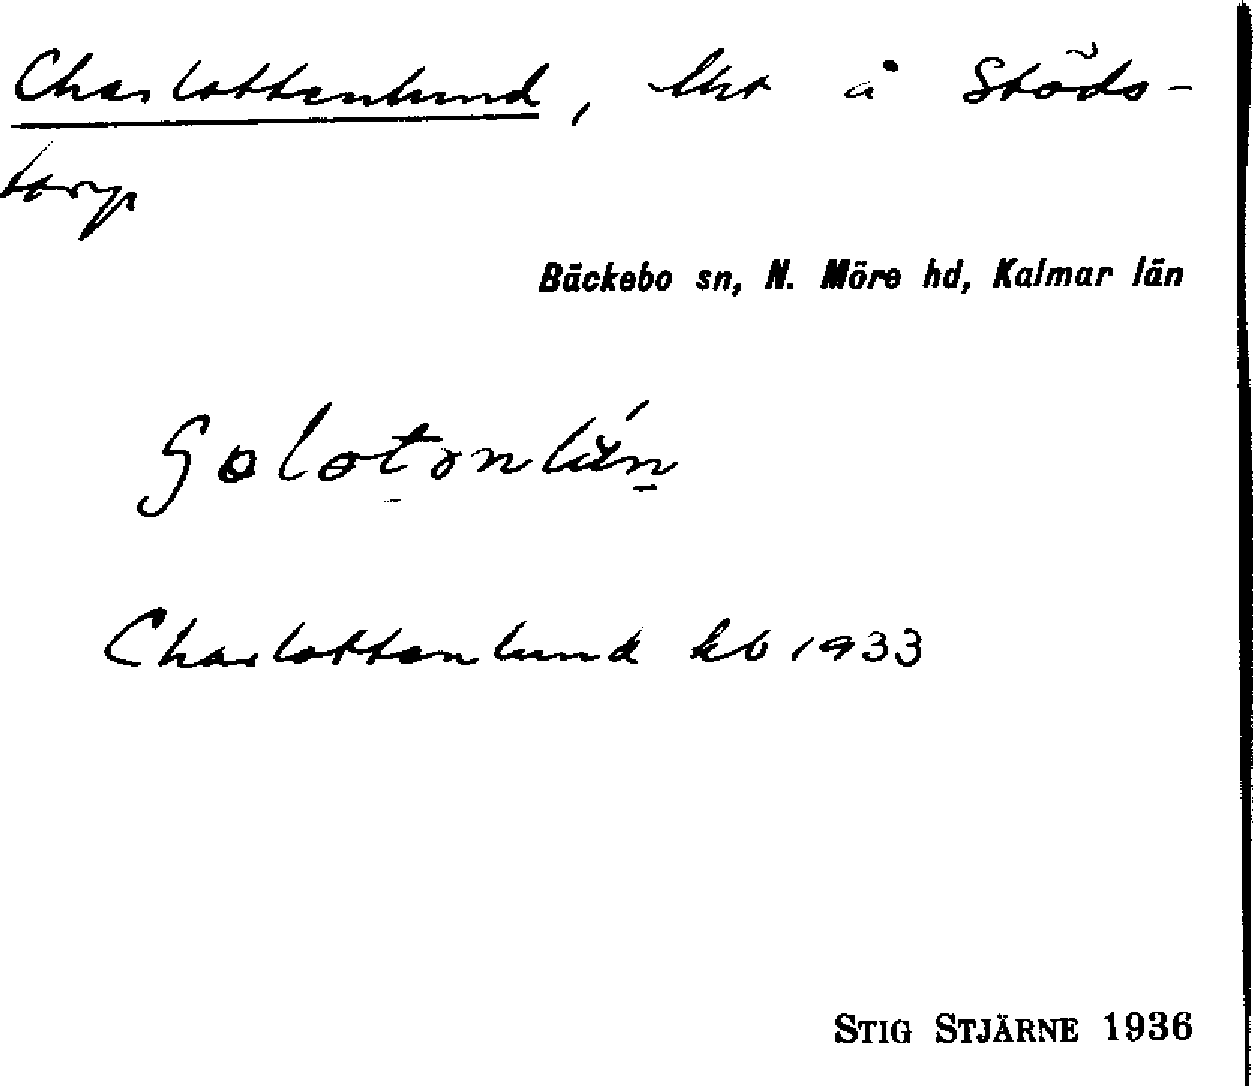 Charlottenlund, lht å Stöds-
torp
Bäckebo sn, N. Möre hd, Kalmar län
Charlottenlund kb 1933
STIG STJÄRNE 1936